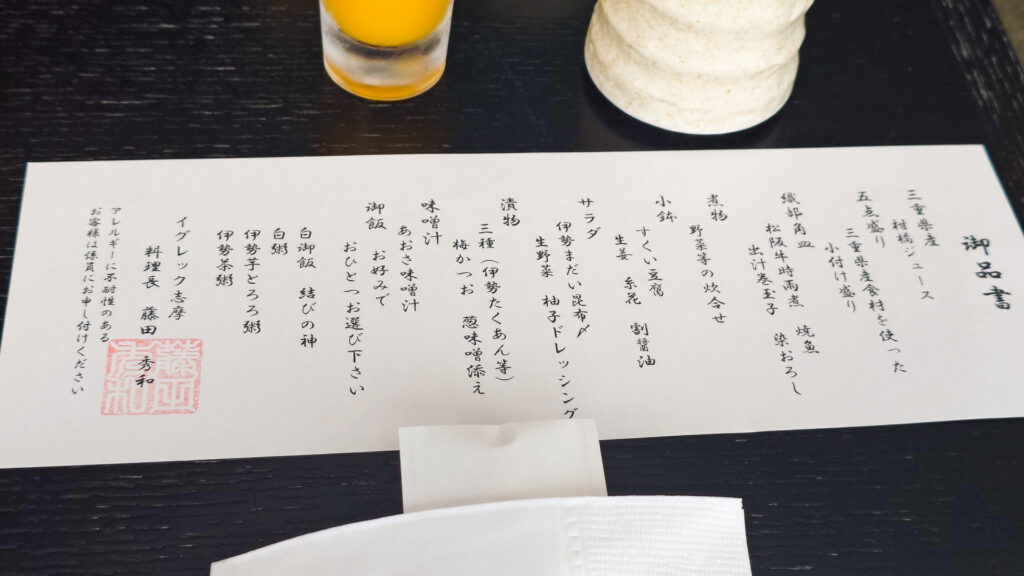 御品書
三重県産
柑橘ジュース
五点盛り
三重県産食材を使った
小付け盛り
織部角皿
松阪牛時雨煮 焼魚
出汁巻玉子 染おろし
煮物
野菜等の炊合せ
小鉢
すくい豆腐
生姜 糸花 割醤油
サラダ
伊勢まだい昆布〆
生野菜 柚子ドレッシング
漬物
三種（伊勢たくあん等）
梅かつお 葱味噌添え
味噌汁
あおさ味噌汁
御飯 お好みで
おひとつお選び下さい
白御飯 結びの神
白粥
伊勢芋とろろ粥
伊勢茶粥
イグレック志摩
料理長 藤田 秀和
アレルギーに不耐性のある
お客様は係員にお申し付けください